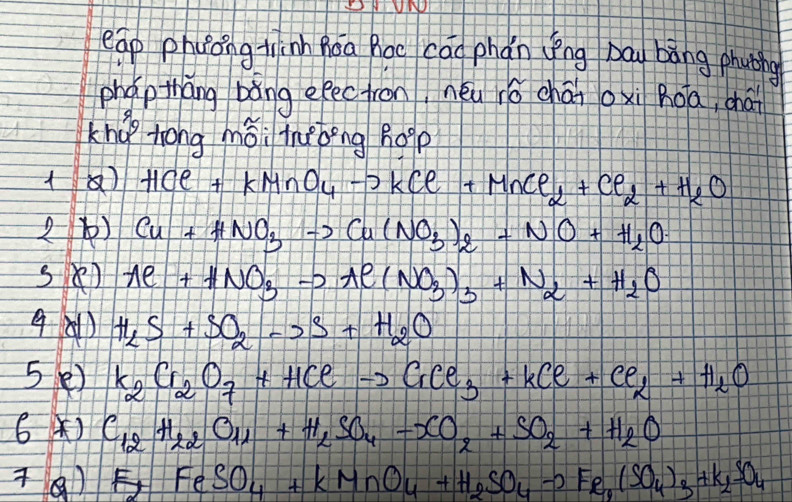 BTVN
Lập phương trình hóa học các phản ứng sau bằng phương
pháp thăng bằng electron, nêu rõ chất oxi hóa, chất
khử trong mỗi trường hợp
1 a) HCl + KMnO₄ -> KCl + MnCl₂ + Cl₂ + H₂O
2 b) Cu + HNO₃ -> Cu(NO₃)₂ + NO + H₂O.
3 c) Al + HNO₃ -> Al(NO₃)₃ + N₂ + H₂O
4 d) H₂S + SO₂ -> S + H₂O
5 e) K₂Cr₂O₇ + HCl -> CrCl₃ + KCl + Cl₂ + H₂O
6 f) C₁₂H₂₂O₁₁ + H₂SO₄ -> CO₂ + SO₂ + H₂O
7 g) FeSO₄ + KMnO₄ + H₂SO₄ -> Fe₂(SO₄)₃ + K₂SO₄